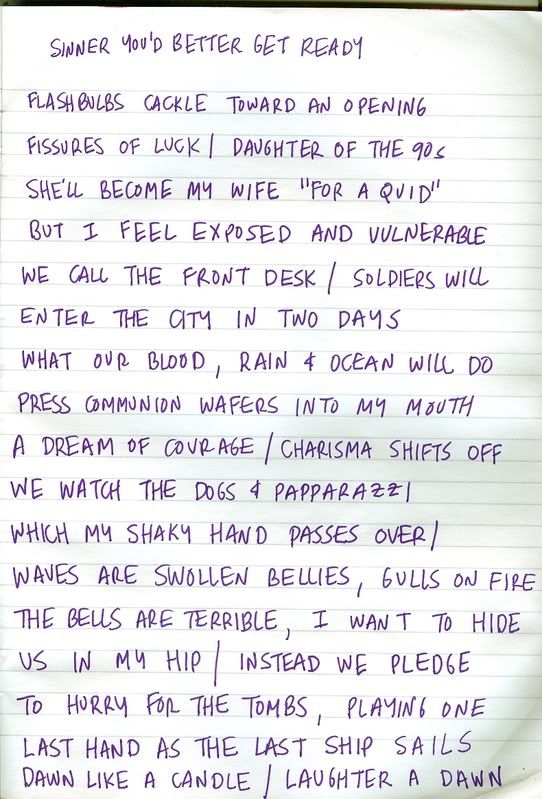 SINNER YOU'D BETTER GET READY
FLASHBULBS CACKLE TOWARD AN OPENING
FISSURES OF LUCK / DAUGHTER OF THE 90s
SHE'LL BECOME MY WIFE "FOR A QUID"
BUT I FEEL EXPOSED AND VULNERABLE
WE CALL THE FRONT DESK / SOLDIERS WILL
ENTER THE CITY IN TWO DAYS
WHAT OUR BLOOD, RAIN & OCEAN WILL DO
PRESS COMMUNION WAFERS INTO MY MOUTH
A DREAM OF COURAGE / CHARISMA SHIFTS OFF
WE WATCH THE DOGS & PAPPARAZZI
WHICH MY SHAKY HAND PASSES OVER /
WAVES ARE SWOLLEN BELLIES, GULLS ON FIRE
THE BELLS ARE TERRIBLE, I WANT TO HIDE
US IN MY HIP / INSTEAD WE PLEDGE
TO HURRY FOR THE TOMBS, PLAYING ONE
LAST HAND AS THE LAST SHIP SAILS
DAWN LIKE A CANDLE / LAUGHTER A DAWN